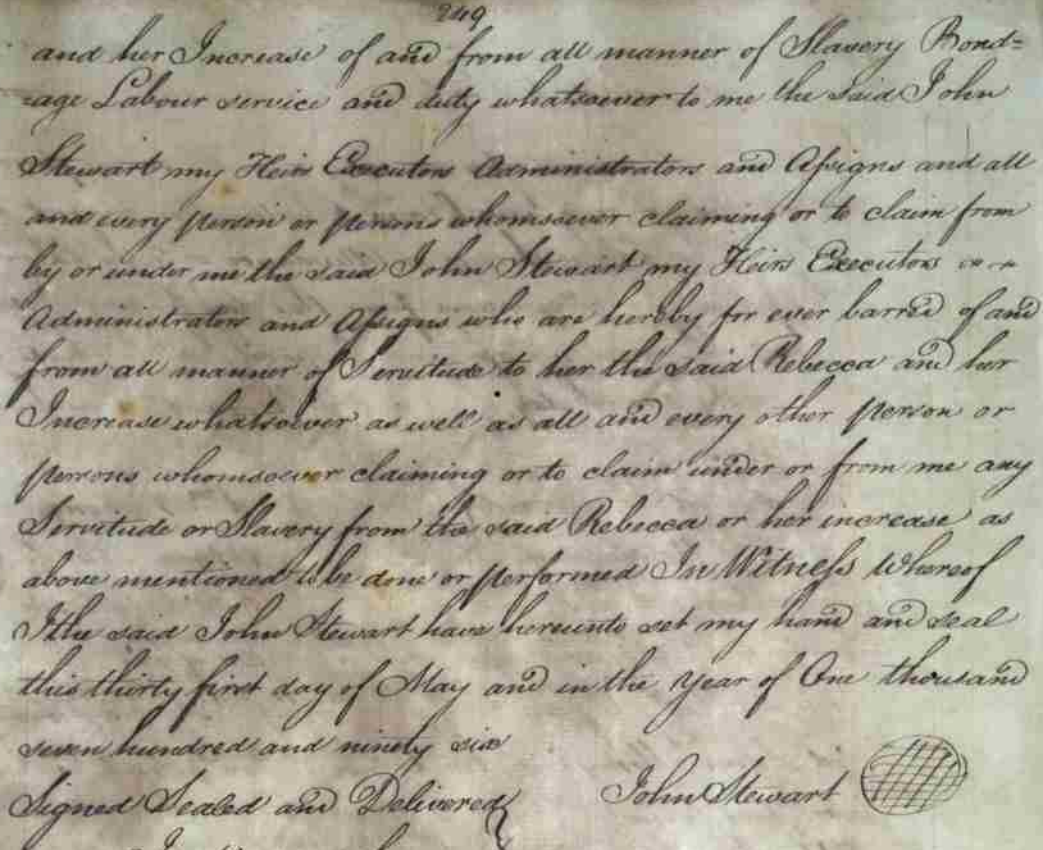 249
and her Increase of and from all manner of Slavery Bond=
=age Labour service and duty whatsoever to me the said John
Stewart my Heirs Executors Administrators and Assigns and all
and every person or persons whomsoever claiming or to claim from
by or under me the said John Stewart my Heirs Executors
Administrators and Assigns who are hereby for ever barred of and
from all manner of Servitude to her the said Rebecca and her
Increase whatsoever as well as all and every other person or
persons whomsoever claiming or to claim under or from me any
Servitude or Slavery from the said Rebecca or her increase as
above mentioned to be done or performed In Witness Whereof
I the said John Stewart have hereunto set my hand and seal
this thirty first day of May and in the year of One thousand
seven hundred and ninety six
Signed Sealed and Delivered John Stewart